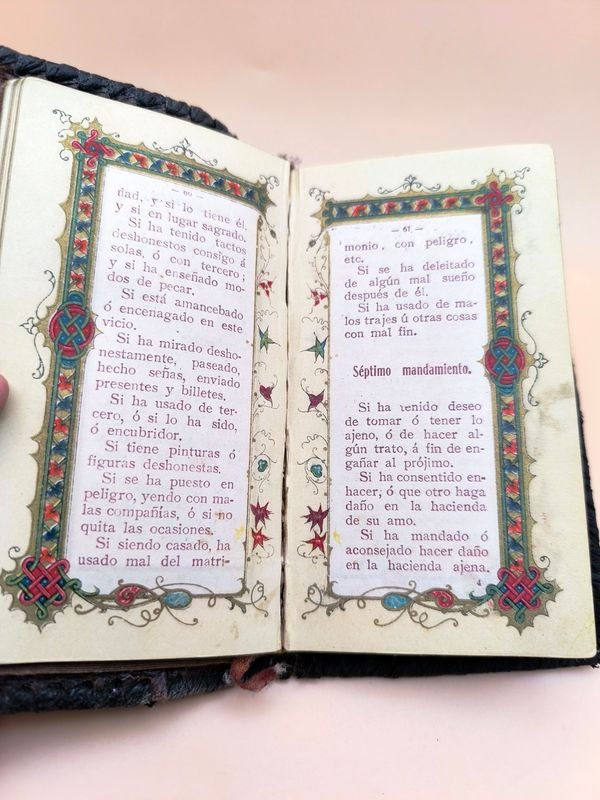 — 60 —
dad, y si lo tiene él.
y si en lugar sagrado.
Si ha tenido tactos
deshonestos consigo á
solas, ó con tercero;
y si ha enseñado mo-
dos de pecar.
Si está amancebado
ó encenagado en este
vicio.
Si ha mirado desho-
nestamente, paseado,
hecho señas, enviado
presentes y billetes.
Si ha usado de ter-
cero, ó si lo ha sido,
ó encubridor.
Si tiene pinturas ó
figuras deshonestas.
Si se ha puesto en
peligro, yendo con ma-
las compañías, ó si no
quita las ocasiones.
Si siendo casado, ha
usado mal del matri-
— 61 —
monio, con peligro,
etc.
Si se ha deleitado
de algún mal sueño
después de él.
Si ha usado de ma-
los trajes ú otras cosas
con mal fin.
Séptimo mandamiento.
Si ha tenido deseo
de tomar ó tener lo
ajeno, ó de hacer al-
gún trato, á fin de en-
gañar al prójimo.
Si ha consentido en-
hacer, ó que otro haga
daño en la hacienda
de su amo.
Si ha mandado ó
aconsejado hacer daño
en la hacienda ajena.
4